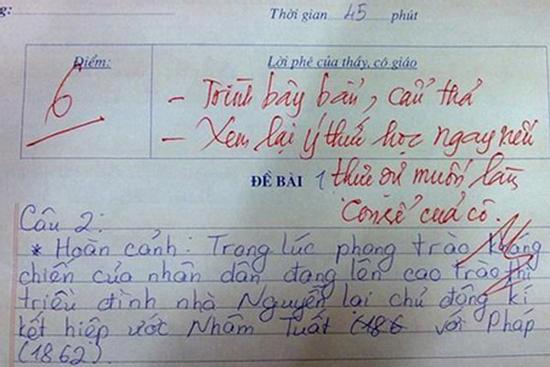 g:
Thời gian 45 phút
Điểm:
Lời phê của thầy, cô giáo
6
- Trình bày bẩn, cẩu thả
- Xem lại ý thức học ngay nếu
thực sự muốn làm
ĐỀ BÀI 1
"Con rể" của cô.
Câu 2:
* Hoàn cảnh: Trong lúc phong trào kháng
chiến của nhân dân đang lên cao trào thì
triều đình nhà Nguyễn lại chủ động kí
kết hiệp ước Nhâm Tuất (186 với Pháp
(1862).